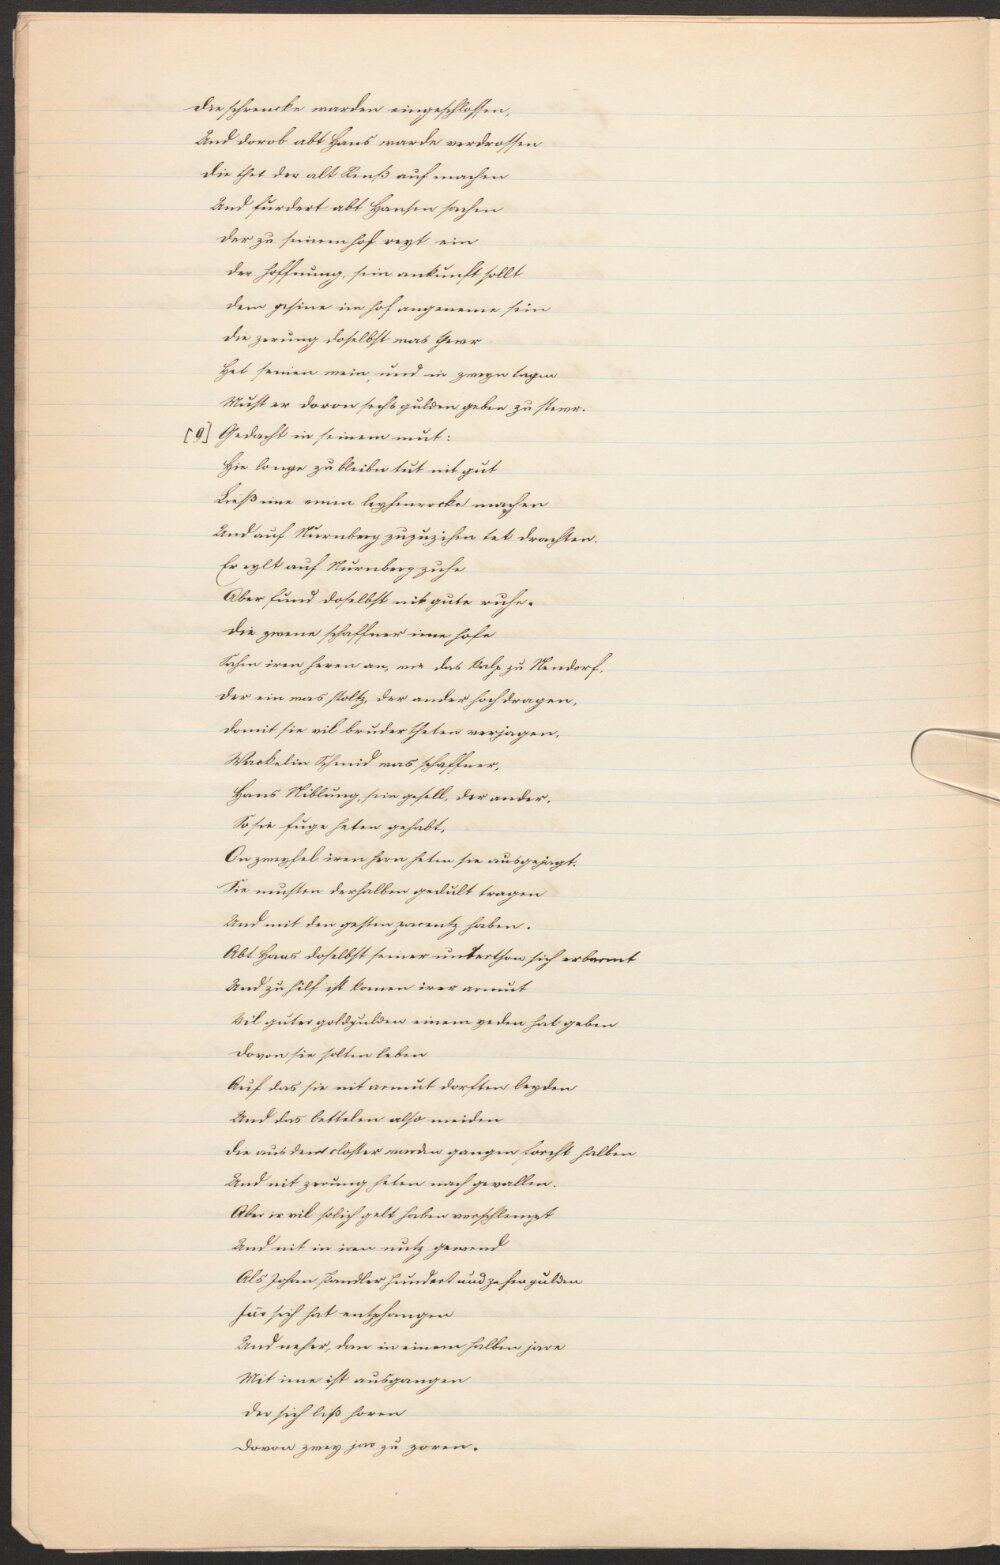 Die schrencke warden eingeschlossen,
Und dorob abt Hans warde verdrossen
Die thet der alt Renß auf machen
Und furdert abt Hansen sachen
Der zu seinem hof reyt ein
Der hoffnung, sein ankunft sollt
Dem gesine im hof angeneme sein
Die zerung doselbst was theur
Het seinen wein, und in zweyn tagen
Must er davon sechs gulden geben zu steur.
[9] Gedacht in seinem mut:
Hie lange zu bleibn tut nit gut
Ließ ime einen leyhenrocke machen
Und auf Nurnberg zuzuzihen tet drachten.
Er eylt auf Nurnberg zuhe
Aber fund doselbst nit gute ruhe.
Die zwene schaffner ime hofe
Sahen iren heren an, wie das kalp zu Neudorf.
Der ein was stoltz, der ander hochdragen,
Domit sie vil bruder theten verjagen.
Schmid was schaffner,
Hans Niblung, sein gesell, der ander.
So sie fuge heten gehabt,
On zweyfel iren hern heten sie ausgejagt.
Sie musten derhalben gedult tragen
Und mit den gesten pacentz haben.
Abt Hans doselbst seiner unterthon sich erbarmt
Und zu hilf ist komen irer armut
Vil guter goldgulden einem yeden hat geben
Dovon sie solten leben
Auf das sie nit armut dorften leyden
Und das bettelen also meiden
Die aus dem closter warden gangen forcht halben
Und nit zerung heten nach gevallen.
Aber ir vil solich gelt haben verschlempt
Und nit in iren nutz gewend
Als Johan Pendler hundert und zehen gulden
für sich hat entphangen
Und neher, dan in einem halben jare
Mit ime ist ausgangen
Der sich ließ horen
Dovon zwey jar zu zeren.